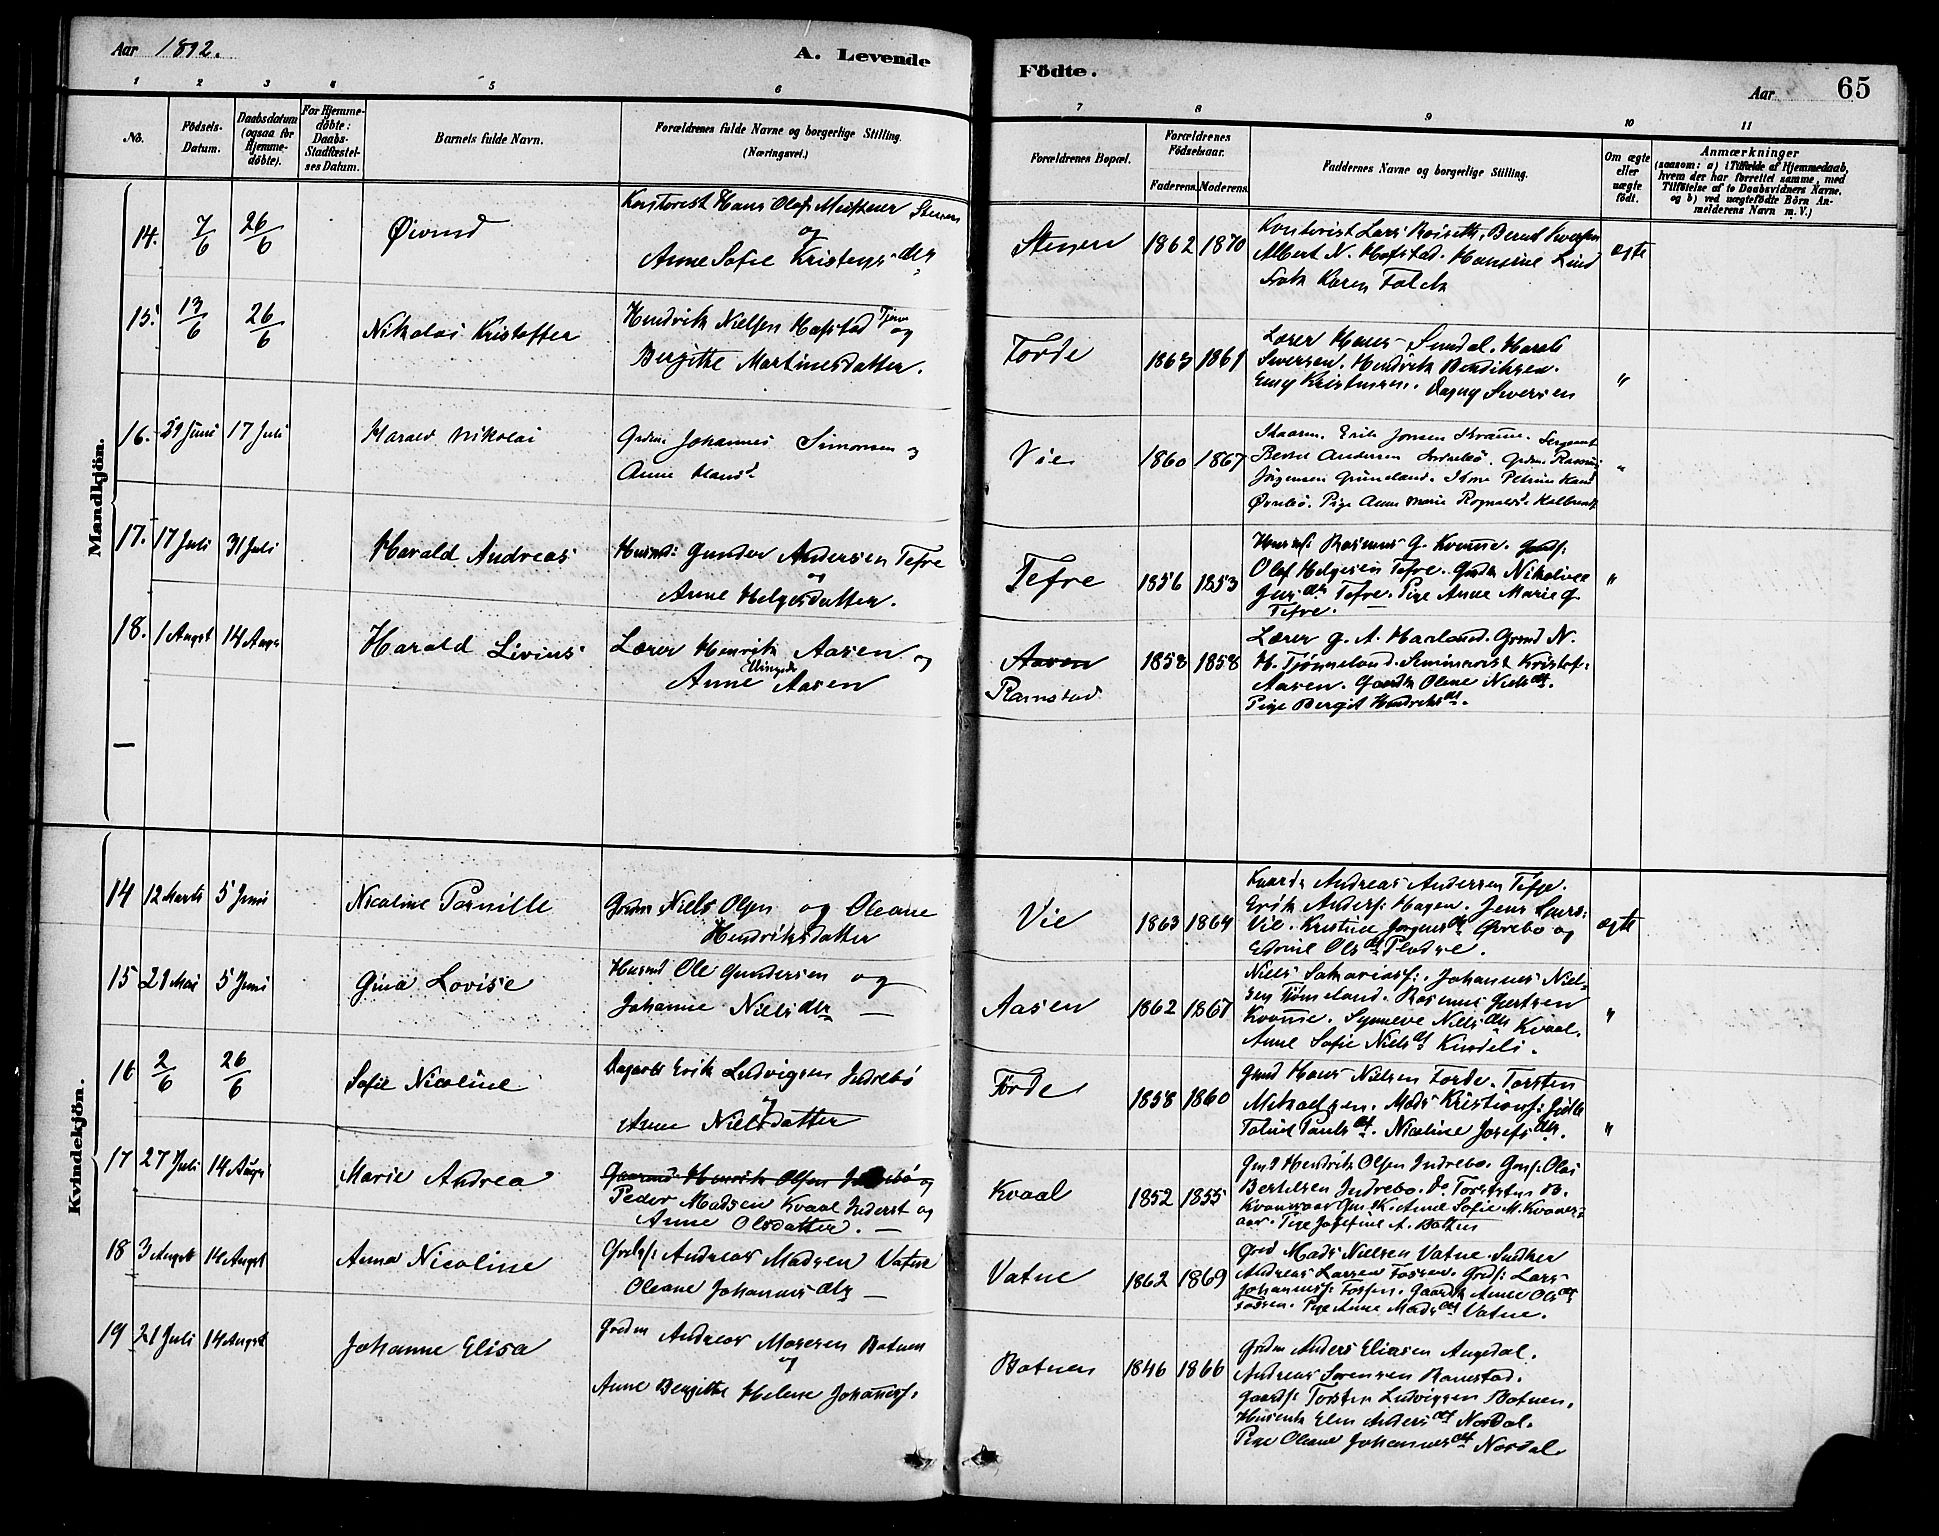 Aar 1892. A. Levende Födte. Aar 65
1 2 3 4 5 6 7 8 9 10 11
No. Födsels-Datum. Daabsdatum (ogsaa for Hjemme-döbte). For Hjemme-döbte: Daabs-Stadfæstel-ses Datum. Barnets fulde Navn. Forældrenes fulde Navne og borgerlige Stilling. (Næringsvei.) Forældrenes Bopæl. Forældrenes Födselsaar. Faderens. Moderens. Faddernes Navne og borgerlige Stilling. Om ægte eller uægte født. Anmærkninger (saasom: a) i Tilfælde af Hjemmedaab, hvem der har forrettet samme, med Tilføielse af to Daabsvidners Navne, og b) ved uægtefödte Börn Anmelderens Navn m. V.)
Mandkjön.
14. 7/6 26/6 Øivind Kontorist Hans Olaf Stenen
og
Anne Sofie dtr Stenen 1862 1870 Kontorist Lars Bernt Iversen ægte
Albert N. Hafstad. Hansine Lind
Karen Falch
15. 13/6 26/6 Nikolai Kristoffer Hendrik Nielsen Hafstad og
Bergithe Martinusdatter. Förde 1863 1861 Lærer Hans Sundal.
Iversen. Hendrik Bendiksen.
Kristensen. Dagny Iversen "
16. 29 Juni 17 Juli Harald Nikolai Grdm. Johannes Simonsen og
Anne Hansd. Vie 1860 1867 Erik Jonsen Kvamme. Sergeant
Andersen Indrebö. Grdm. Rasmus "
Jörgensen Grimeland. Petrine
Øvrebö. Pige Anne Marie
17. 17 Juli 31 Juli Harald Andreas Husmd: Gunder Andersen Tefre
og
Anne Helgesdatter. Tefre 1856 1853 Rasmus G. Kvamme.
Olaf Helgesen Tefre. Nikoline "
dtr Tefre. Pige Anne Marie G.
Tefre.
18. 1 Augst 14 Augs Harald Livius Lærer Henrik Aasen og
Anne Ellingsdr Aasen Aasen
Ramstad 1858 1858 Lærer G. A. Havland. Grmd N.
H. Tjönneland. Seminarist Kristof:
Aasen. Oline Nielsdtr.
Pige Bergit Hendriksdtr.
—
Kvindekjön.
14 12 Marts 5 Juni Nicoline Pernille Grdm Niels Olsen og Oleane
Hendriksdatter Vie 1863 1864 Andreas Andersen Tefre. ægte
Erik Anders: Hagen. Jens Lars:
Vie. Kristine Jörgensdt. Øvrebö og
Olsdt Flødre.
15 21 Mai 5 Juni Gina Lovise Husmd Ole Gundersen og
Johanne Nielsdtr — Aasen 1862 1867 Niels Sakariass:. Johannes Niel-
sen Tjönneland. Rasmus Gjertsen "
Kvamme. Synneve Nielsdtr Kvaal.
Anne Sofie Nielsdt Kindeli.
16 2/6 26/6 Sofie Nicoline Dagarb Erik Ludvigsen Indrebö
og
Anne Nielsdatter Förde 1858 1860 Grmd Hans Nielsen Förde. Torsten
Mikaelsen. Mads Kristians:
Paulsdt. Nicoline Josefsdtr. "
17 27 Juli 14 Augs Marie Andrea Gaarmd Henrik Olsen Indrebö og
Peder Madsen Kvaal Inderst og
Anne Olsdatter. — Kvaal 1852 1855 Gmd Hendrik Olsen Indrebö. Olai
Bertelsen Indrebö. Do Torsten
Anne Sofie M.
Pige Josefine A. Botnen
18 3 Augst 14 Augst Anna Nicoline Andreas Madsen Vatne
Oleane Johannesdtr — Vatne 1862 1869 Grmd Mads Nielsen Vatne.
Andreas Larsen Fossen. Lars
Johanness: Fossen. Anne Olsdt
Fossen. Pige Anne Madsdt Vatne.
19 21 Juli 14 Augst Johanne Elisa Grdm Andreas Botnen
og
Anne Bergitte Helene Johanness. Botnen 1846 1866 Grdm Anders Eliasen Angedal.
Andreas Sorensen Ramstad.
Torsten Ludvigsen Botnen.
Andersdt Nordal.
Pige Oleane Johannesdt Nordal